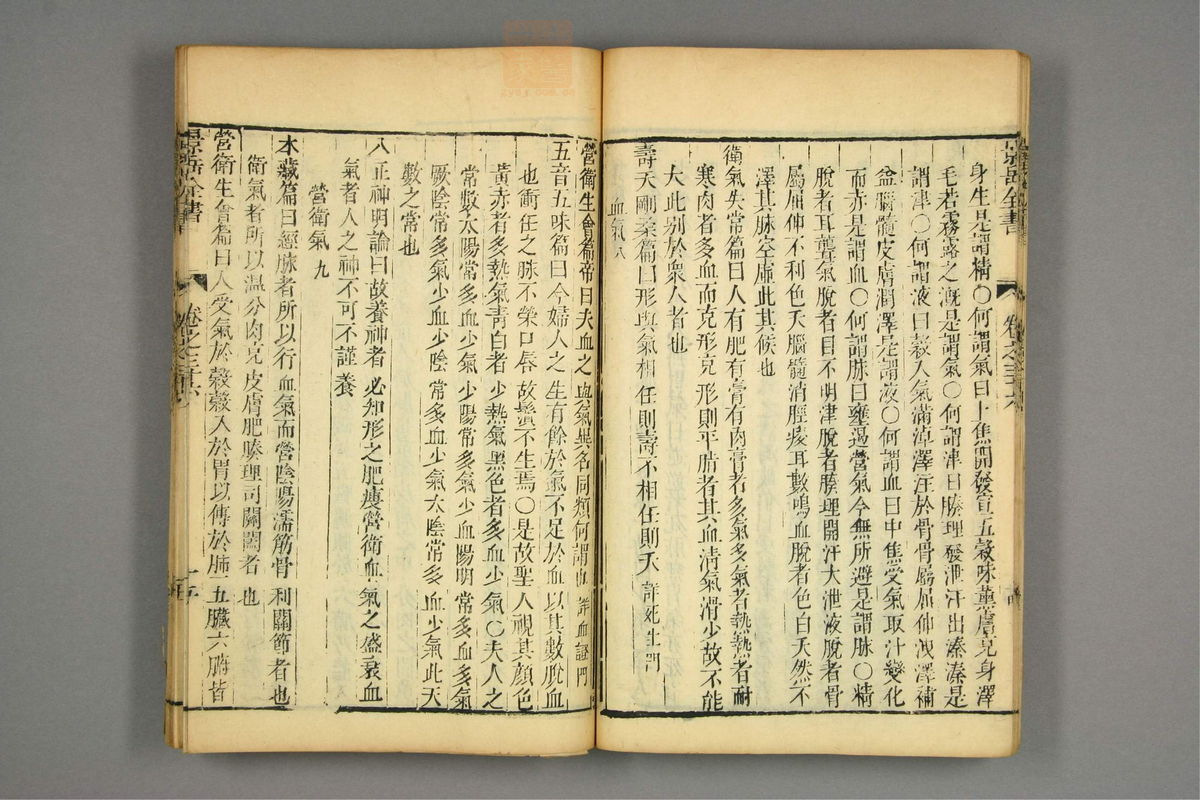 身生是謂精○何謂氣曰上焦開發宣五穀味薰膚克身澤
毛若霧露之溉是謂氣○何謂津曰腠理發泄汗出溱溱是
謂津○何謂液曰穀入氣滿淖澤注於骨骨屬屈伸洩澤補
益腦髓皮膚潤澤是謂液○何謂血曰中焦受氣取汁變化
而赤是謂血○何謂脉曰壅遏營氣令無所避是謂脉○精
脫者耳聾氣脫者目不明津脫者腠理開汗大泄液脫者骨
屬屈伸不利色夭腦髓消脛痠耳數鳴血脫者色白夭然不
澤其脉空虛此其候也
衛氣失常篇曰人有肥有膏有肉膏者多氣多氣者熱熱者耐
寒肉者多血而克形克形則平脂者其血清氣滑少故不能
大此别於衆人者也
壽夭剛柔篇曰形與氣相任則壽不相任則夭 詳死生門
血氣 八
營衛生會篇帝曰夫血之與氣異名同類何謂也 詳血證門
五音五味篇曰今婦人之生有餘於氣不足於血以其數脫血
也衝任之脉不榮口唇故鬚不生焉○是故聖人視其顔色
黃赤者多熱氣青白者少熱氣黑色者多血少氣○夫人之
常數太陽常多血少氣少陽常多氣少血陽明常多血多氣
厥陰常多氣少血少陰常多血少氣太陰常多血少氣此天
數之常也
八正神明論曰故養神者必知形之肥瘦營衛血氣之盛衰血
氣者人之神不可不謹養
營衛氣 九
本藏篇曰經脉者所以行血氣而營陰陽濡筋骨利關節者也
衛氣者所以溫分肉克皮膚肥腠理司關闔者也
營衛生會篇曰人受氣於穀穀入於胃以傳於肺五臟六腑皆
景岳全書
卷之三